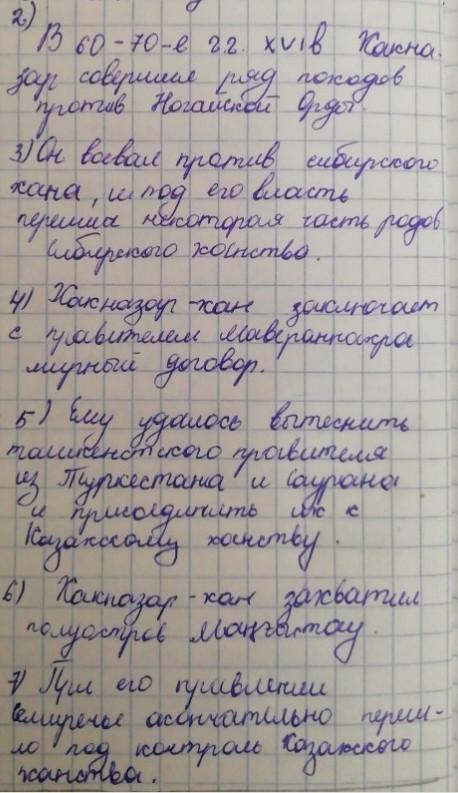 2)
В 60-70-е г.г. XVI в Хакна-
зар совершил ряд походов
против Ногайской Орды.
3) Он воевал против сибирского
хана, и под его власть
перешла некоторая часть родов
Сибирского ханства.
4) Хакназар-хан заключает
с правителем Мавераннахра
мирный договор.
5) Ему удалось вытеснить
ташкентского правителя
из Туркестана и Саурана
и присоединить их к
Казахскому ханству.
6) Хакназар-хан захватил
полуостров Маңғыстау.
7) При его правлении
Семиречье окончательно переш-
ло под контроль Казахского
ханства.